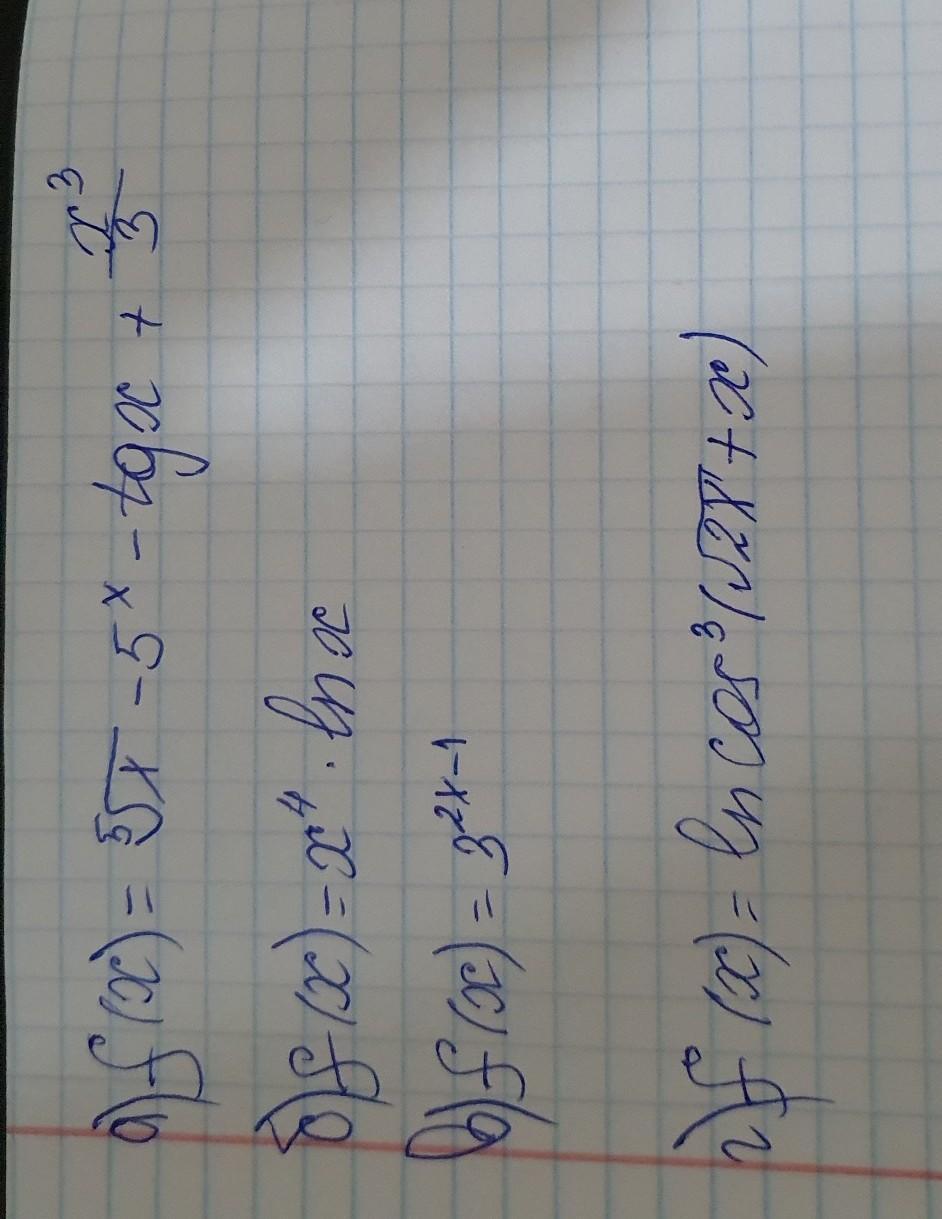 а) f(x) = ⁵√x - 5ˣ - tg x + x³/3
б) f(x) = x⁴ · ln x
в) f(x) = 3²ˣ⁻¹
г) f(x) = ln cos³(√2x + x)